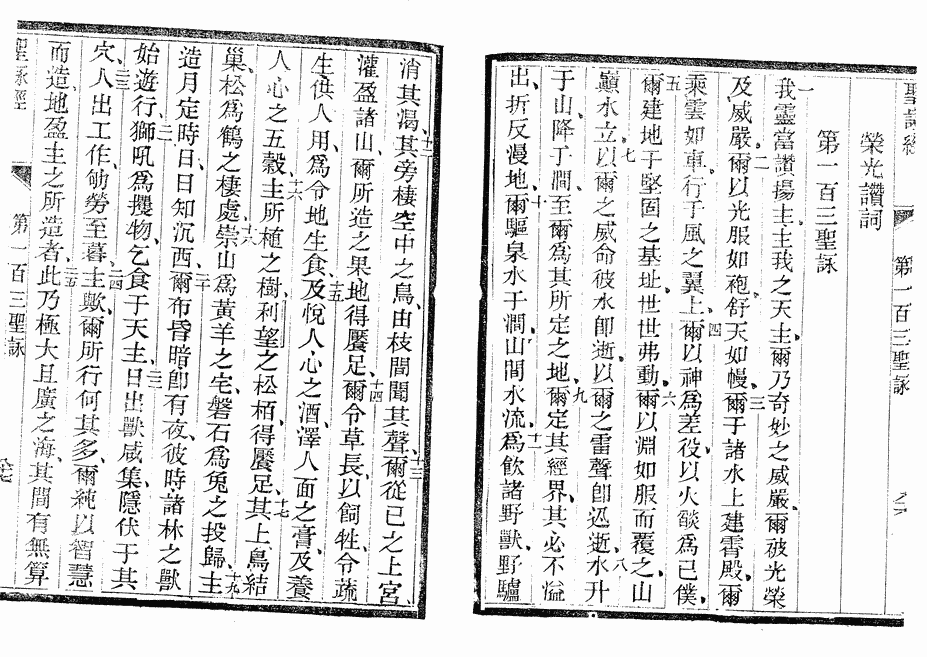 聖詠經
第一百三聖詠
榮光讚詞
第一百三聖詠
一我靈當讚揚主、主我之天主、爾乃奇妙之威嚴、爾被光榮
及威嚴、二爾以光服如袍、舒天如幔、三爾于諸水上建霄殿、爾
乘雲如車、行于風之翼上、四爾以神為差役、以火燄為己僕、
五爾建地于堅固之基址、世世弗動、六爾以淵如服而覆之、山
巔水立、七以爾之威命彼水卽逝、以爾之雷聲卽迅逝、八水升
于山、降于澗、至爾為其所定之地、九爾定其經界、其必不溢
出、折反漫地、十爾驅泉水于澗、山間水流、十一為飲諸野獸、野驢
消其渴、十二其旁棲空中之鳥、由枝間聞其聲、十三爾從己之上宮
灌盈諸山、爾所造之果、地得饜足、十四爾令草長、以飼牲、令蔬
生、供人用、為令地生食、十五及悅人心之酒、澤人面之膏、及養
人心之五穀、十六主所植之樹、利望之松栢、得饜足、十七其上鳥結
巢、松為鶴之棲處、十八崇山為黃羊之宅、磐石為兔之投歸、十九主
造月定時日、日知沉西、二十爾布昏暗卽有夜、彼時諸林之獸
始遊行、二一獅吼為攫物、乞食于天主、二二日出獸咸集、隱伏于其
穴、二三人出工作、劬勞至暮、二四主歟、爾所行何其多、爾純以智慧
而造、地盈主之所造者、二五此乃極大且廣之海、其間有無算
聖詠經
第一百三聖詠